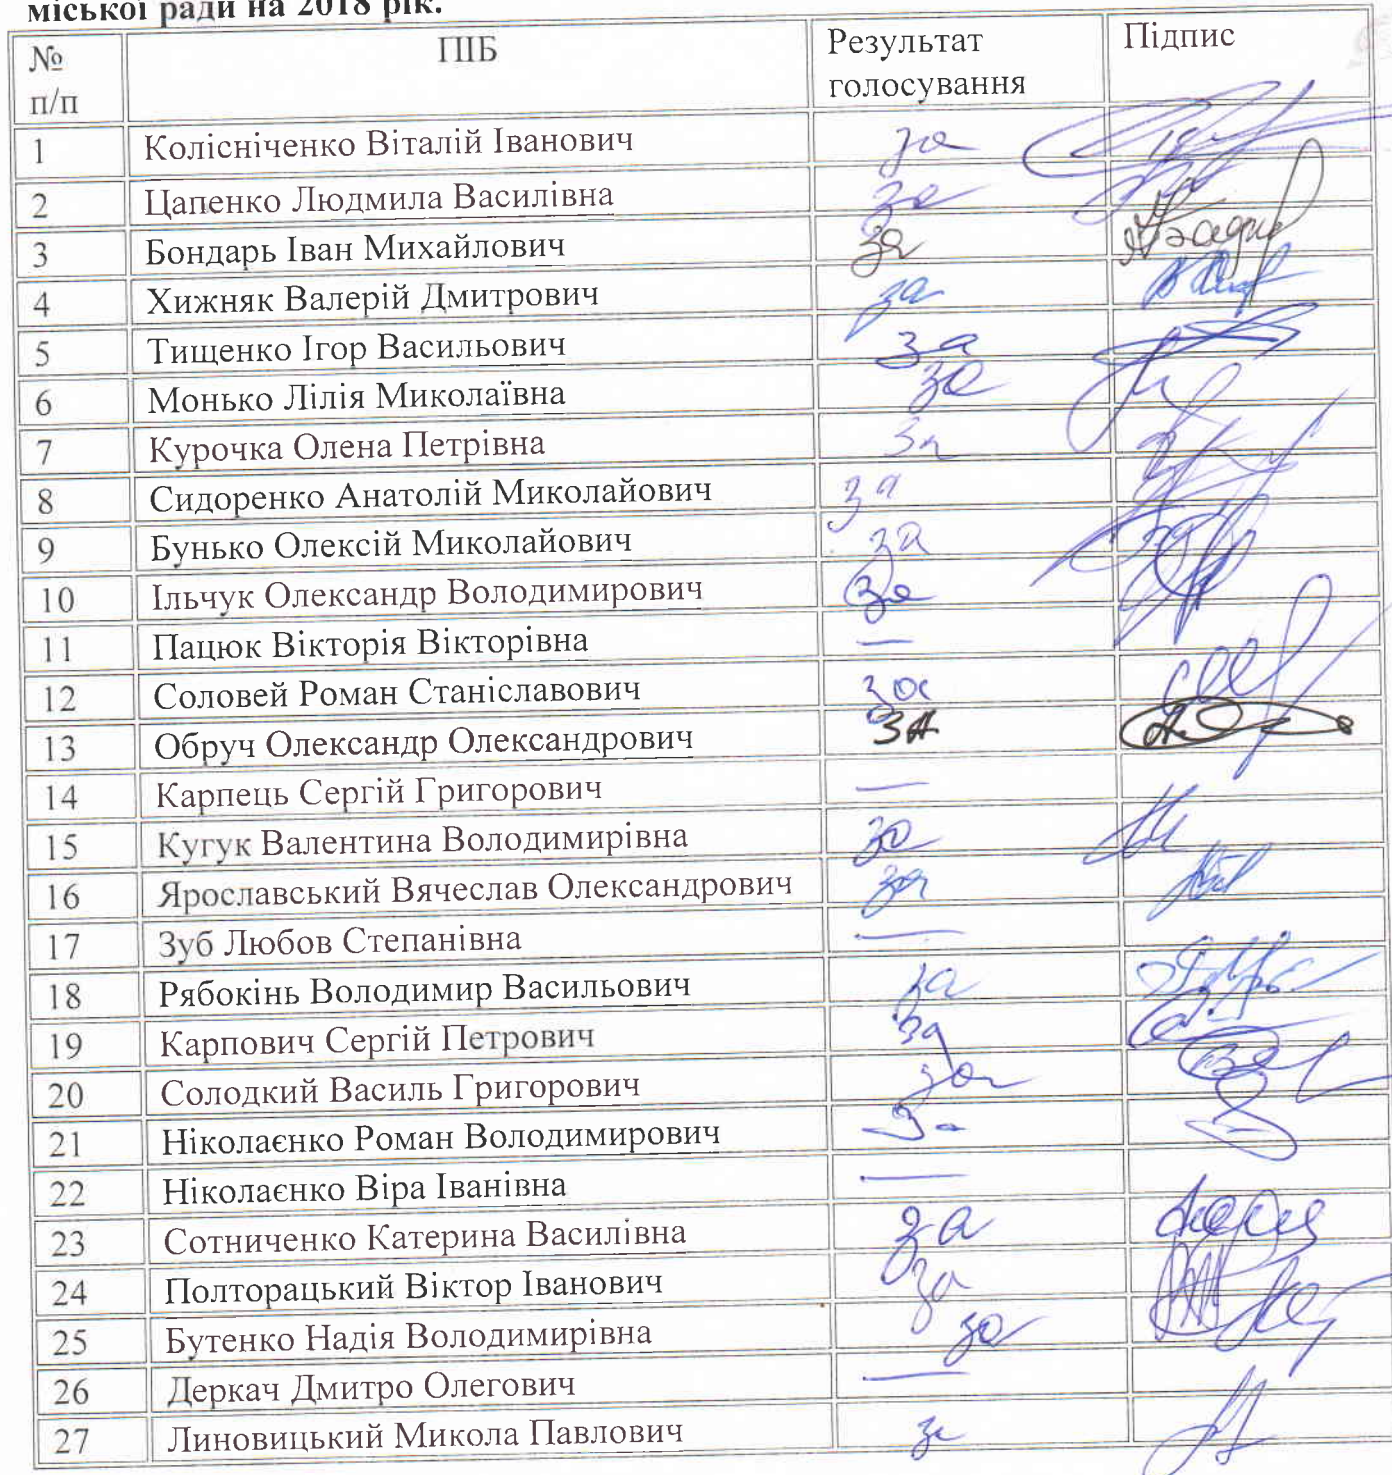 міської ради на 2018 рік.
№ п/п ПІБ Результат голосування Підпис
1 Колісніченко Віталій Іванович за
2 Цапенко Людмила Василівна за
3 Бондарь Іван Михайлович за
4 Хижняк Валерій Дмитрович за
5 Тищенко Ігор Васильович за
6 Монько Лілія Миколаївна за
7 Курочка Олена Петрівна за
8 Сидоренко Анатолій Миколайович за
9 Бунько Олексій Миколайович за
10 Ільчук Олександр Володимирович за
11 Пацюк Вікторія Вікторівна —
12 Соловей Роман Станіславович за
13 Обруч Олександр Олександрович ЗА
14 Карпець Сергій Григорович —
15 Кугук Валентина Володимирівна за
16 Ярославський Вячеслав Олександрович за
17 Зуб Любов Степанівна —
18 Рябокінь Володимир Васильович за
19 Карпович Сергій Петрович за
20 Солодкий Василь Григорович за
21 Ніколаєнко Роман Володимирович За
22 Ніколаєнко Віра Іванівна —
23 Сотниченко Катерина Василівна за
24 Полторацький Віктор Іванович за
25 Бутенко Надія Володимирівна за
26 Деркач Дмитро Олегович —
27 Линовицький Микола Павлович за